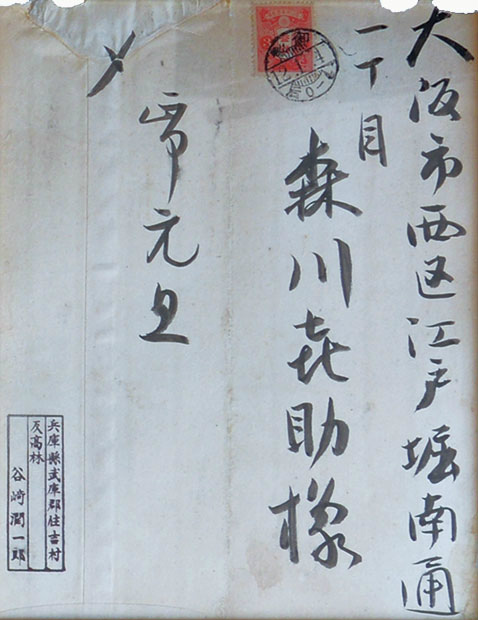 大阪市西区江戸堀南通
一丁目
森川喜助様
〆
元旦
兵庫縣武庫郡住吉村
反高林
谷崎潤一郎